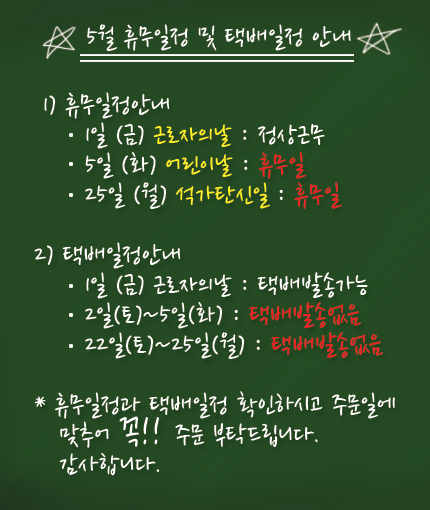 5월 휴무일정 및 택배일정 안내
1) 휴무일정안내
• 1일 (금) 근로자의날 : 정상근무
• 5일 (화) 어린이날 : 휴무일
• 25일 (월) 석가탄신일 : 휴무일
2) 택배일정안내
• 1일 (금) 근로자의날 : 택배발송가능
• 2일(토)~5일(화) : 택배발송없음
• 22일(토)~25일(월) : 택배발송없음
* 휴무일정과 택배일정 확인하시고 주문일에
맞추어 꼭!! 주문 부탁드립니다.
감사합니다.